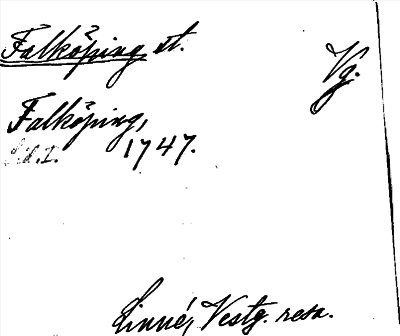 Falköping st. Vg.
Falköping,
1747.
Linné, Vestg. resa.